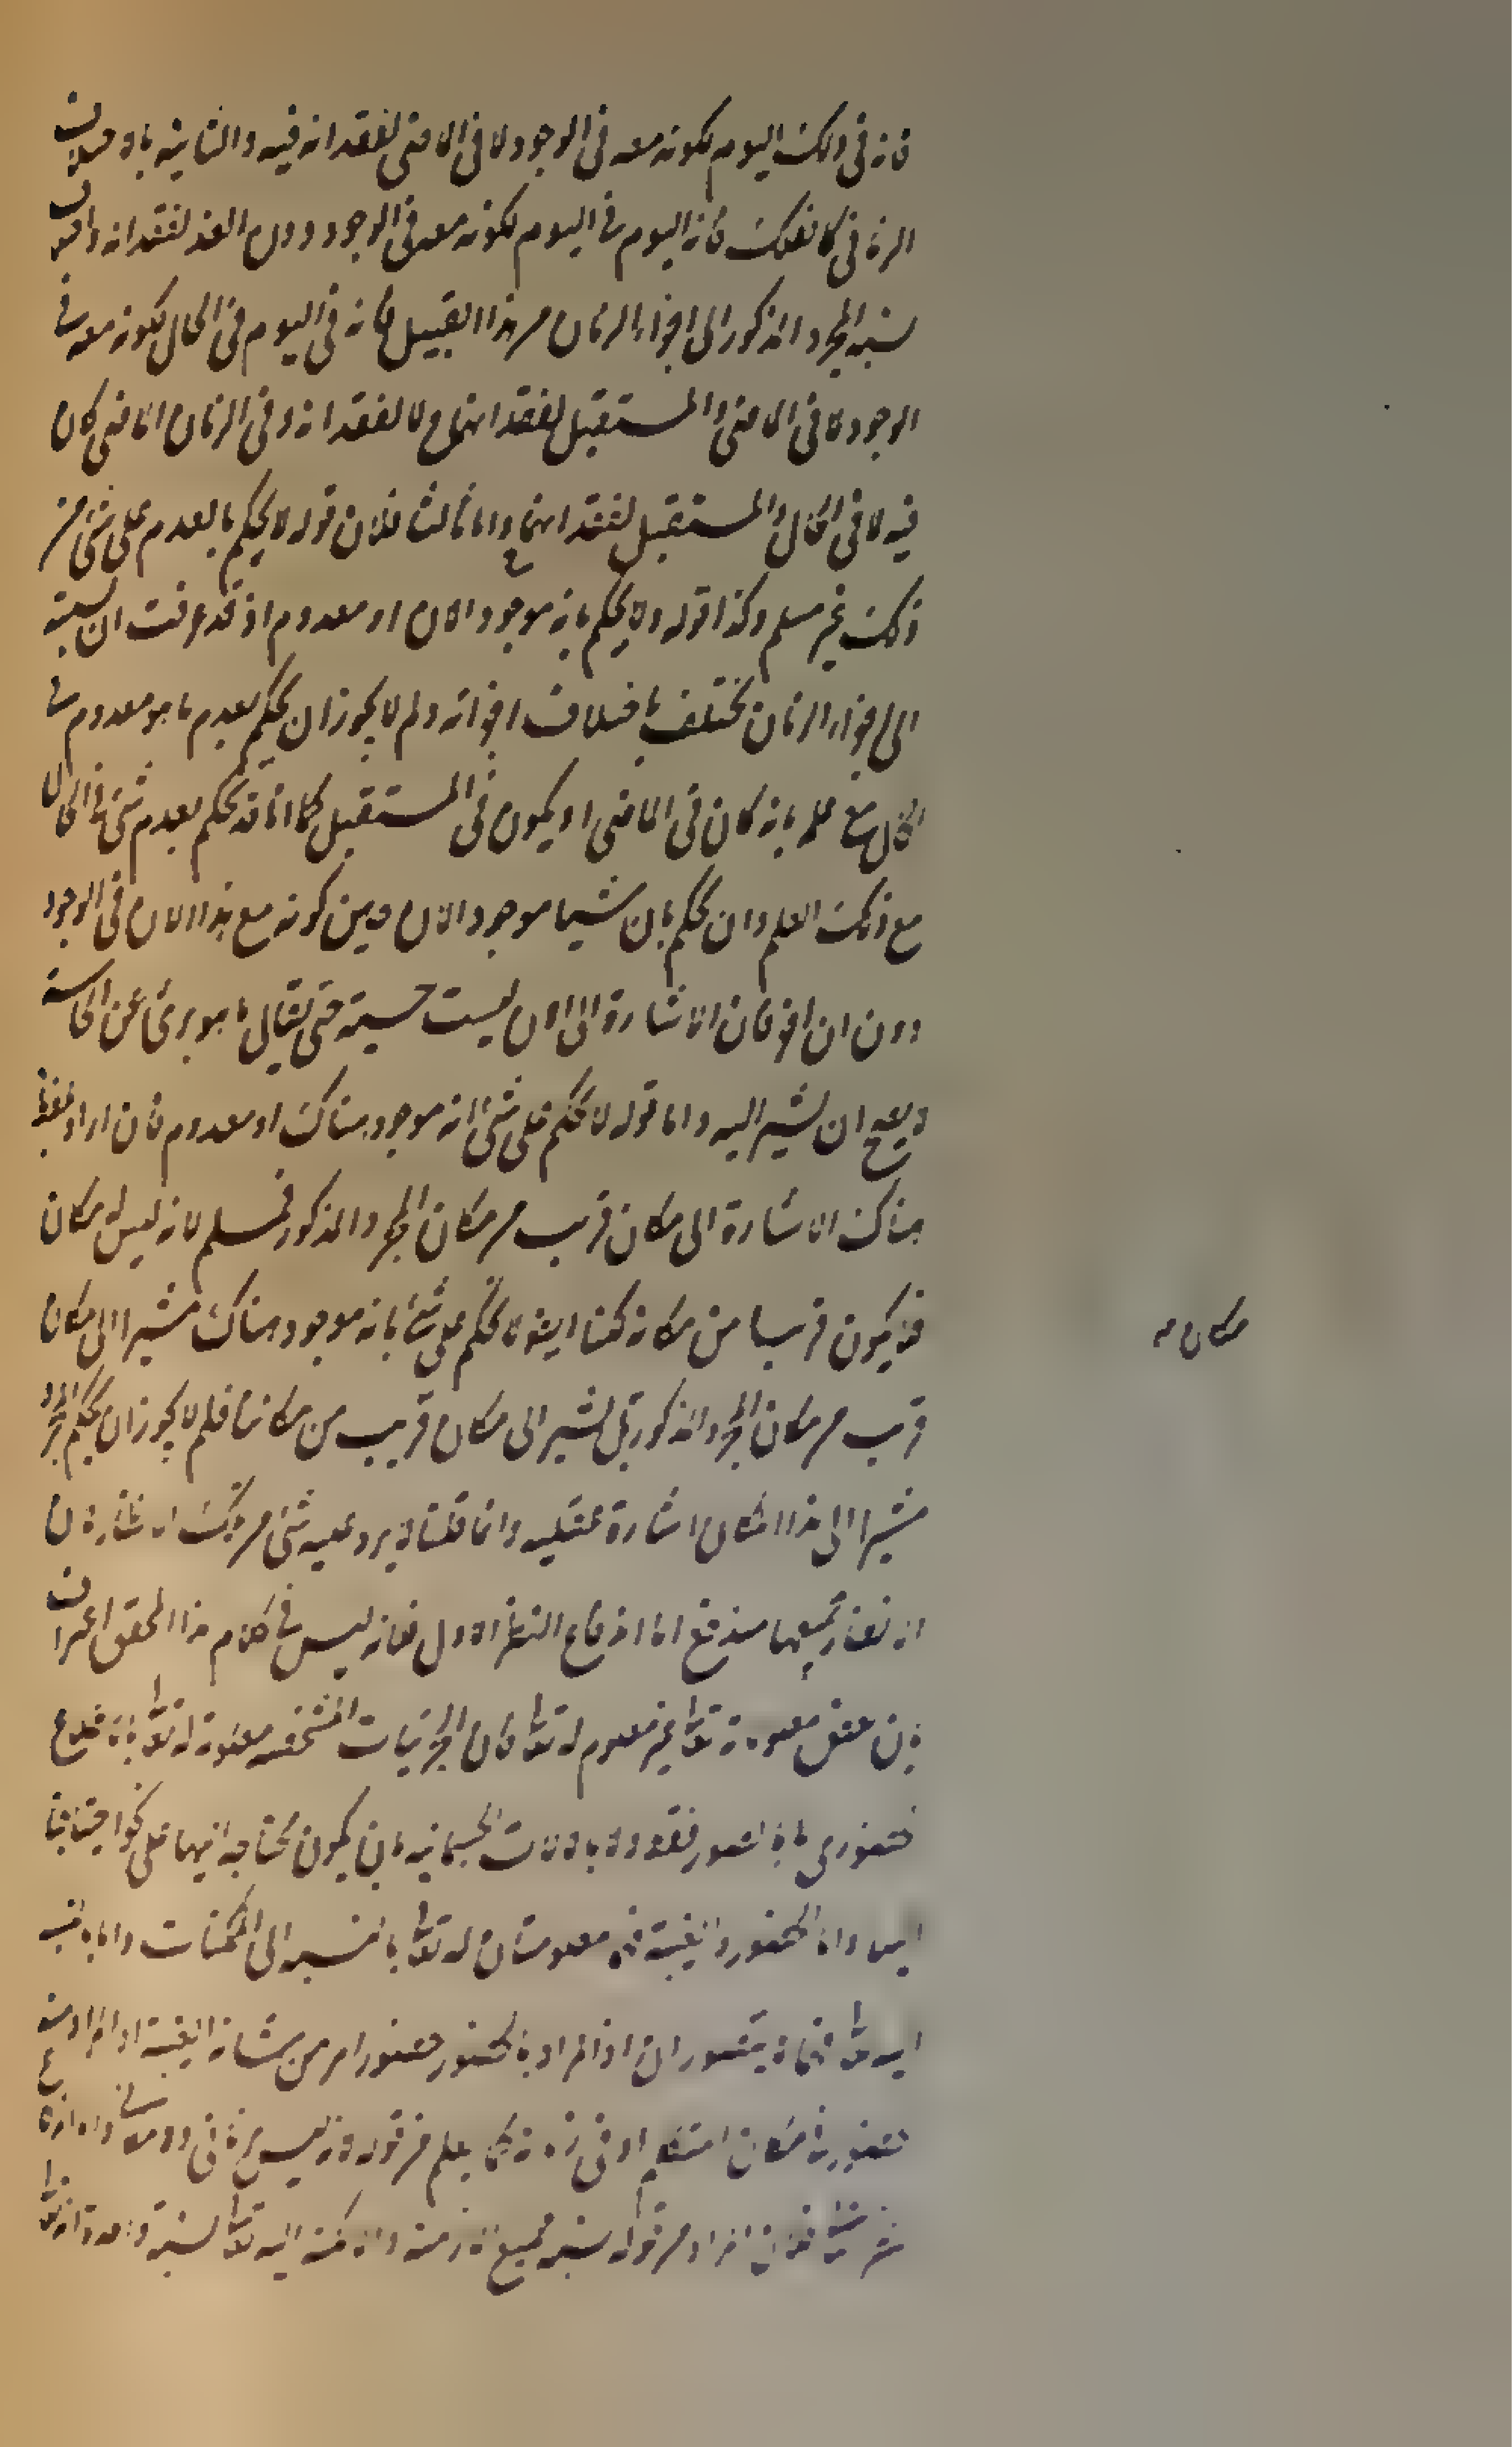 فانه في ذلك اليوم لكونه معه في الوجود لا في الماضي لفقدانه فيه والثانية باختلاف
الزماني كالفلك فانه اليوم في اليوم لكونه معه في الوجود دون الغد لفقدانه واختلاف
نسبة المجرد المذكور الى اجزاء الزمان من هذا القبيل فانه في اليوم في الحال لكونه معه في
الوجود لا في الماضي والمستقبل لفقدانهما لا لفقدانه وفي الزمان الماضي كان
فيه لا في الحال والمستقبل لفقدانهما واما ثالثا فلان قوله لا يحكم بالعدم على شئ من
ذلك غير مسلم وكذا قوله ولا يحكم بانه موجود الان او معدوم اذ قد عرفت ان نسبته
الى اجزاء الزمان تختلف باختلاف اجزائه ولم لا يجوز ان يحكم بعدم ما هو معدوم في
الحال مع علمه بانه كان في الماضي او يكون في المستقبل كما انا قد نحكم بعدم شئ في الحال
مع ذلك العلم وان يحكم بان شيئا موجود الان حين كونه مع هذا الان في الوجود
دون ان اخر فان الاشارة الى الان ليست حسية حتى يقال ما هو برئ عن الحاسة
لا يصح ان يشير اليه واما قوله لا يحكم على شئ انه موجود هناك او معدوم فان اراد بلفظة
هناك الاشارة الى مكان قريب من مكان المجرد المذكور فمسلم لانه ليس له مكان
فيكون قريبا من مكانه لكنا ايضا لا نحكم على شئ بانه موجود هناك مشيرا الى مكان
مكان صح
قريب من مكان المجرد المذكور بل نشير الى مكان قريب من مكاننا فلم لا يجوز ان يحكم المجرد
مشيرا الى هذا المكان اشارة عقلية وانما قلنا لا يرد عليه شئ من تلك الانظار لان
الانظار جميعها مندفع اما اندفاع النظر الاول فلانه ليس في كلام هذا المحقق اعتراف
بان بعض معلوماته تعالى غير معلوم له تعالى فان الجزئيات المتشخصة معلومة له تعالى
حضوري الجسمانية بان يكون محتاجا اليها على نحو احتياجنا
اليها واما الحضور والغيبة فهما معلومتان له تعالى بالنسبة الى الممكنات واما بالنسبة
اليه تعالى فهما لا يتصوران اذ المراد بالحضور حضور امر من شانه الغيبة او المراد منه
حضور في مكان المتكلم او في زمانه كما يعلم من قوله لانه ليس
فلان المراد من قوله نسبة جميع الازمنة والامكنة اليه تعالى نسبة واحدة